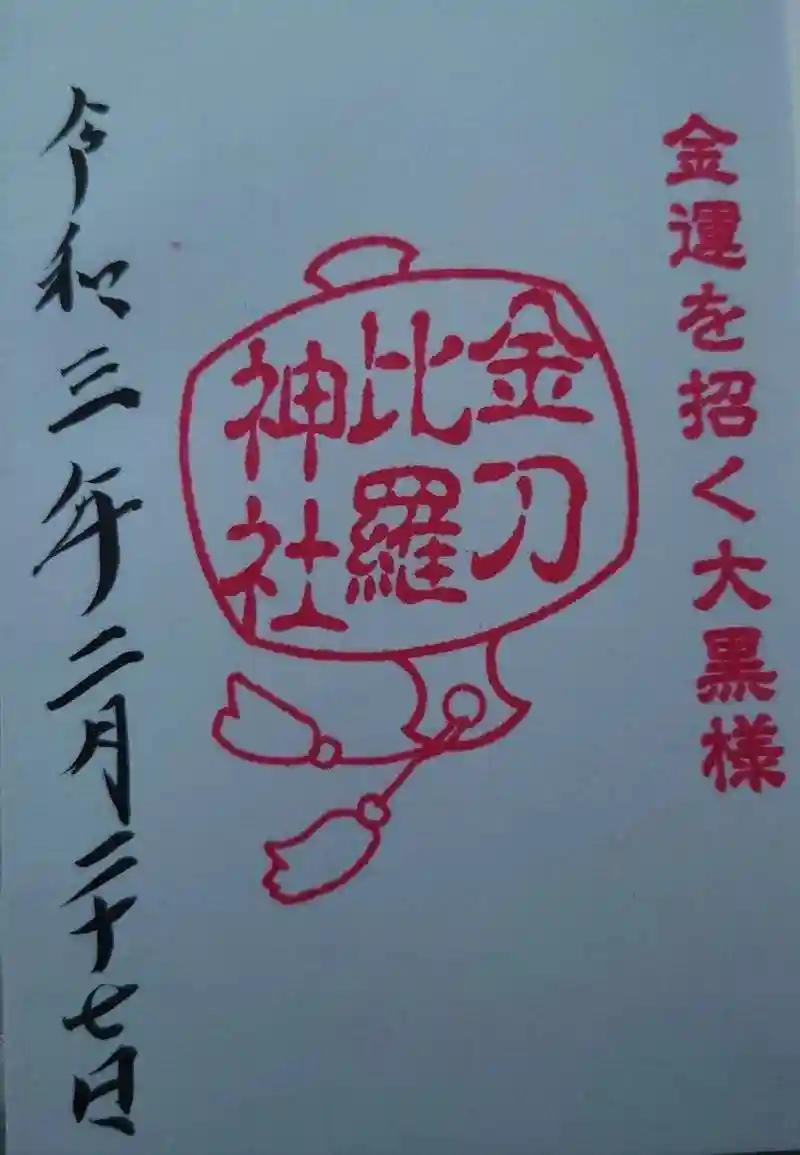 金運を招く大黒様
金刀
比羅
神社
令和三年二月二十七日